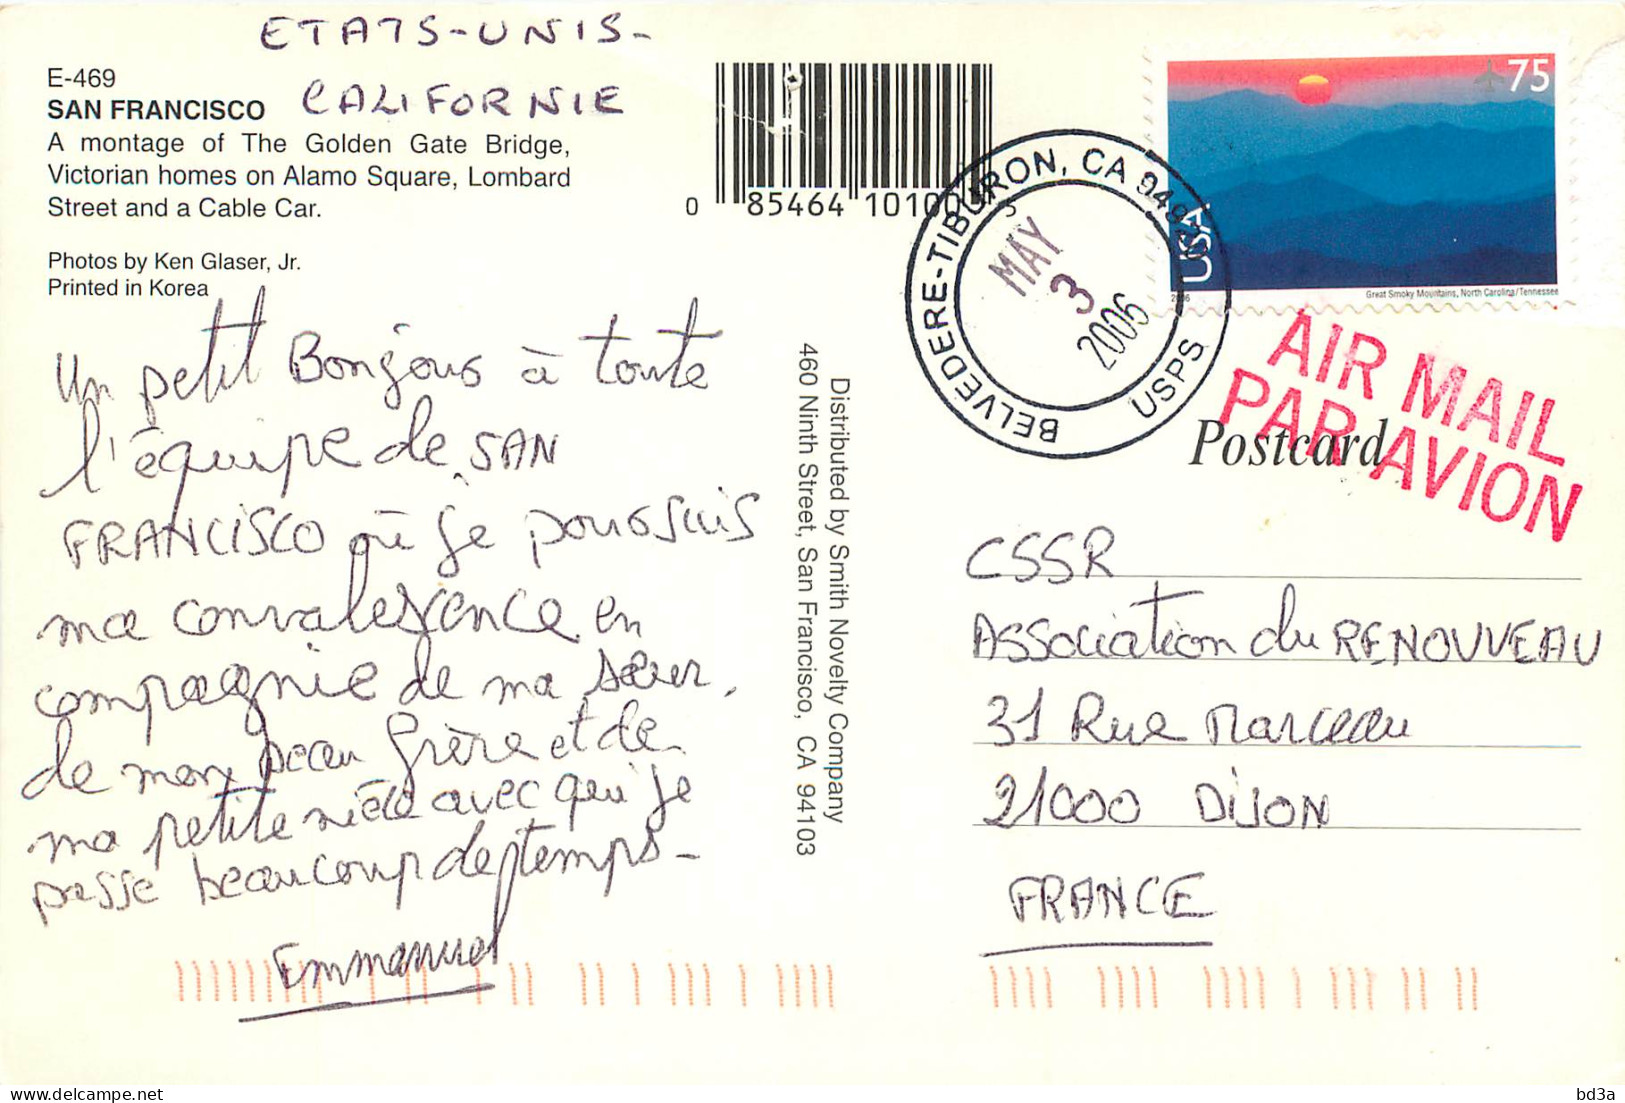 ETATS-UNIS-
CALIFORNIE
E-469
SAN FRANCISCO
A montage of The Golden Gate Bridge,
Victorian homes on Alamo Square, Lombard
Street and a Cable Car.
Photos by Ken Glaser, Jr.
Printed in Korea
0 85464 10100
Un petit Bonjour à toute
l'équipe de SAN
FRANCISCO où je poursuis
ma convalescence en
compagnie de ma sœur,
de mon beau frère et de
ma petite nièce avec qui je
passe beaucoup de temps-
Emmanuel
Distributed by Smith Novelty Company
460 Ninth Street, San Francisco, CA 94103
BELVEDERE-TIBURON, CA 94920
USPS
MAY
3
2006
75
USA
2006
Great Smoky Mountains, North Carolina/Tennessee
AIR MAIL
PAR AVION
Postcard
CSSR
Association du RENOUVEAU
31 Rue Marceau
21000 DIJON
FRANCE
bd3a